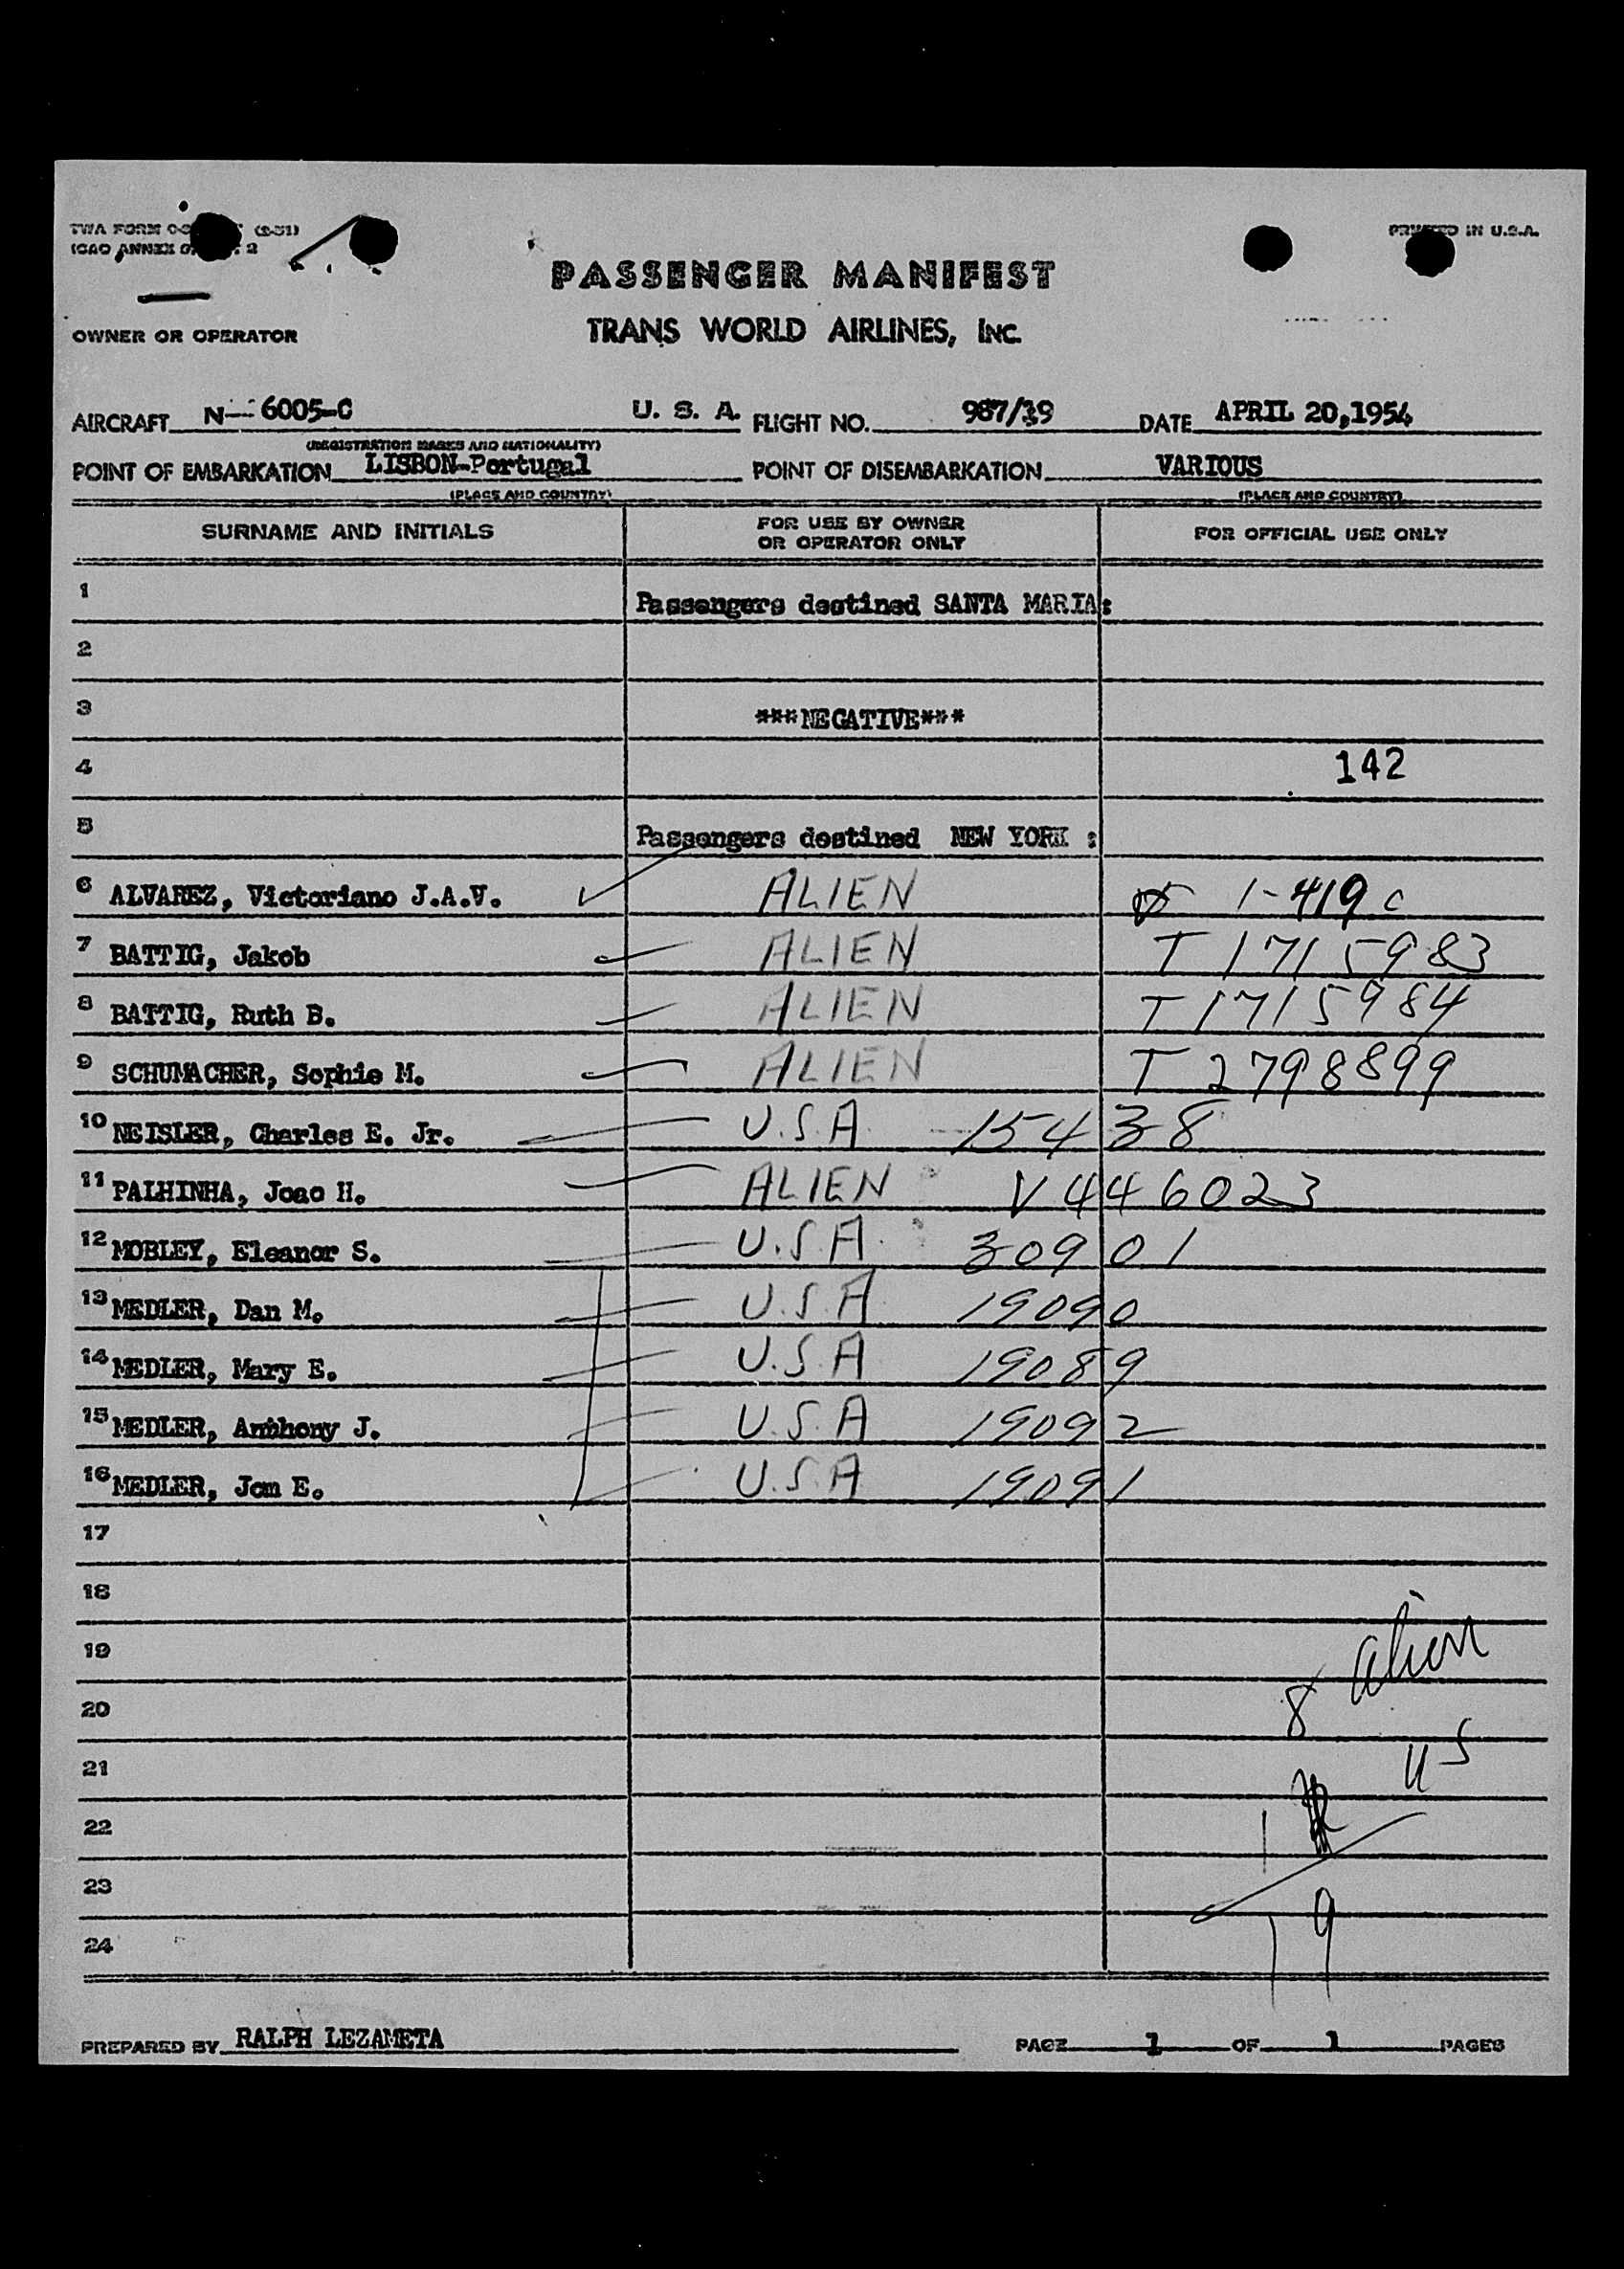 TWA FORM (2-51)
ICAO ANNEX 2
PRINTED IN U.S.A.
PASSENGER MANIFEST
OWNER OR OPERATOR TRANS WORLD AIRLINES, INC.
AIRCRAFT N--6005-C U. S. A. FLIGHT NO. 987/19 DATE APRIL 20,1954
(REGISTRATION MARKS AND NATIONALITY)
POINT OF EMBARKATION LISBON-Portugal POINT OF DISEMBARKATION VARIOUS
(PLACE AND COUNTRY) (PLACE AND COUNTRY)
SURNAME AND INITIALS FOR USE BY OWNER OR OPERATOR ONLY FOR OFFICIAL USE ONLY
1 Passengers destined SANTA MARIA:
2
3 ***NEGATIVE***
4 142
5 Passengers destined NEW YORK :
6 ALVAREZ, Victoriano J.A.V. ALIEN 1-419 c
7 BATTIG, Jakob ALIEN T 1715983
8 BATTIG, Ruth B. ALIEN T 1715984
9 SCHUMACHER, Sophie M. ALIEN T 2798899
10 NEISLER, Charles E. Jr. U.S.A. 15438
11 PALHINHA, Joao H. ALIEN V 446023
12 MOBLEY, Eleanor S. U.S.A. 30901
13 MEDLER, Dan M. U.S.A. 19090
14 MEDLER, Mary E. U.S.A 19089
15 MEDLER, Anthony J. U.S.A 19092
16 MEDLER, Jon E. U.S.A 19091
17
18
19 alien
20 8
21 US
22 1
23
24 19
PREPARED BY RALPH LEZAMETA PAGE 1 OF 1 PAGES